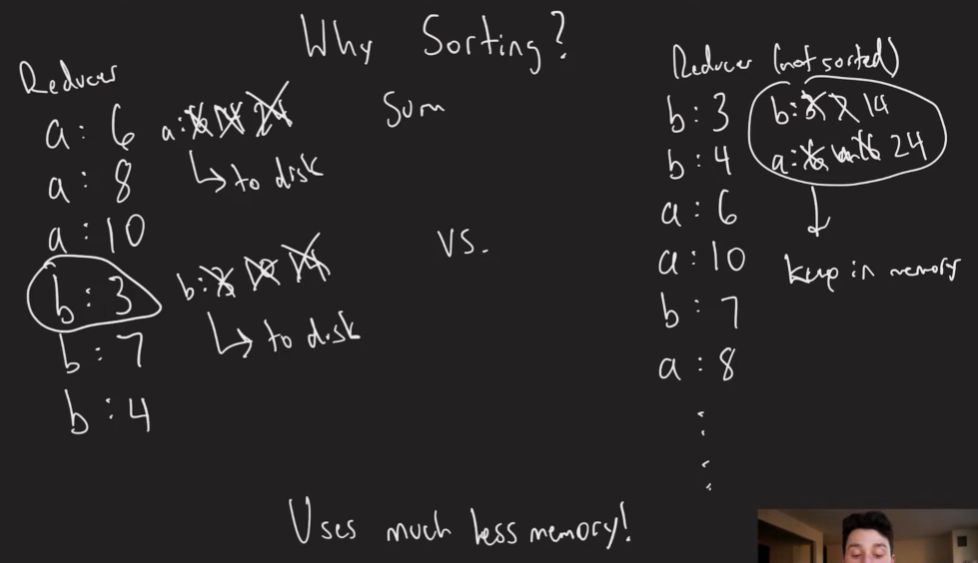 Why Sorting?
Reducer
a: 6 a: 6 14 24
↳ to disk
a: 8
a: 10
b: 3 b: 3 10 14
↳ to disk
b: 7
b: 4
Sum
vs.
Reducer (not sorted)
b: 3 b: 3 7 14
b: 4 a: 6 24
a: 6
a: 10
b: 7
a: 8
keep in memory
Uses much less memory!